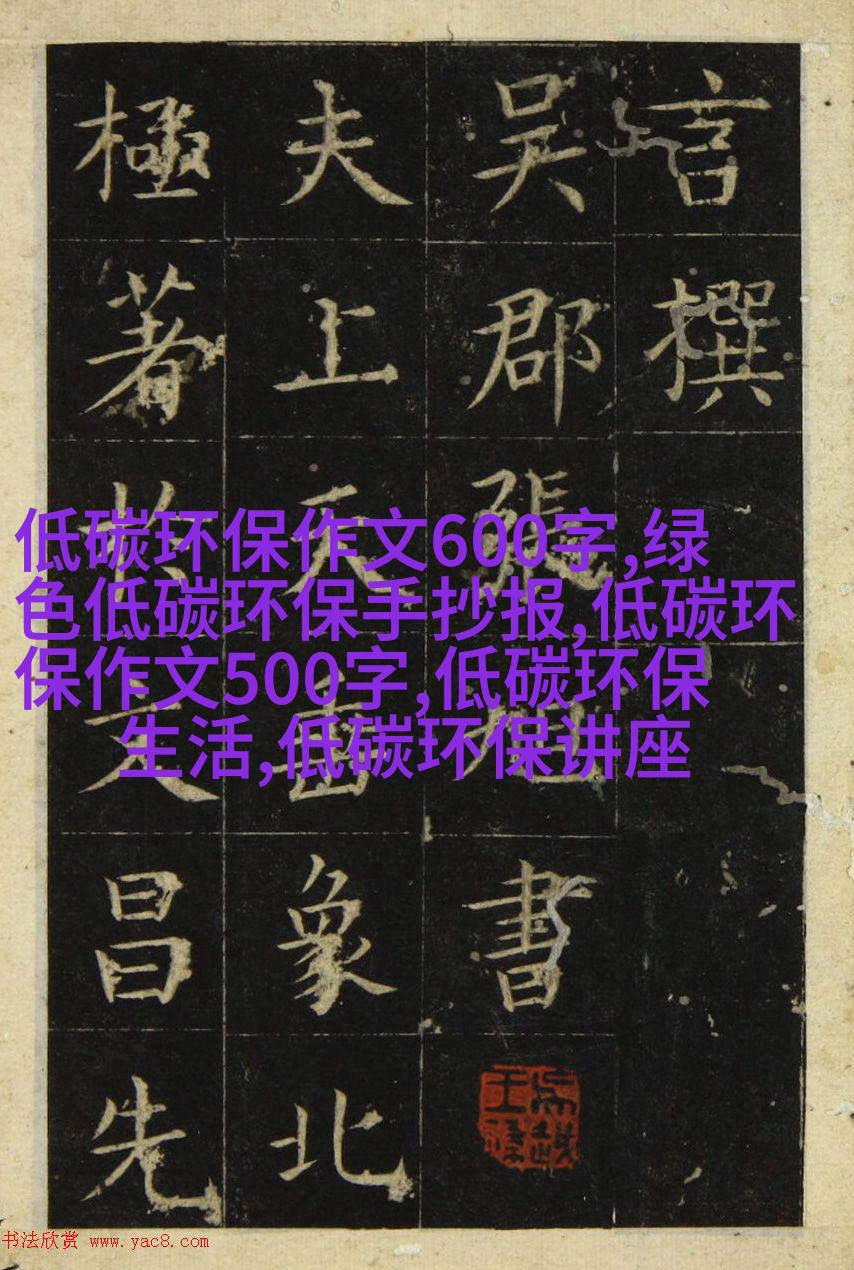 言撰
吴郡張旭書
夫上天垂象北
極著於文昌先
低碳环保作文600字,绿
色低碳环保手抄报,低碳环
保作文500字,低碳环保
生活,低碳环保讲座
书法欣赏 www.yac8.com